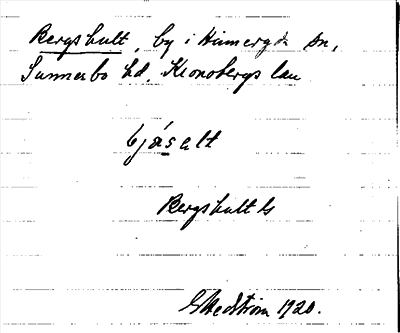 Bergshult, by i Hinneryds sn,
Sunnerbo hd, Kronobergs län
bjásalt
Bergshult G
G Hedström 1920.